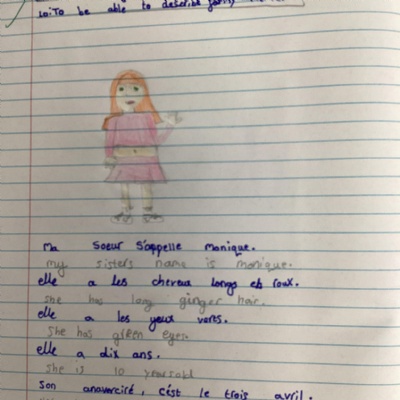 LO: To be able to describe family
Ma soeur s'appelle monique.
my sisters name is monique.
elle a les cheveux longs et roux.
She has long ginger hair.
elle a les yeux verts.
She has green eyes.
elle a dix ans.
She is 10 years old
Son anavercire, c'est le trois avril.